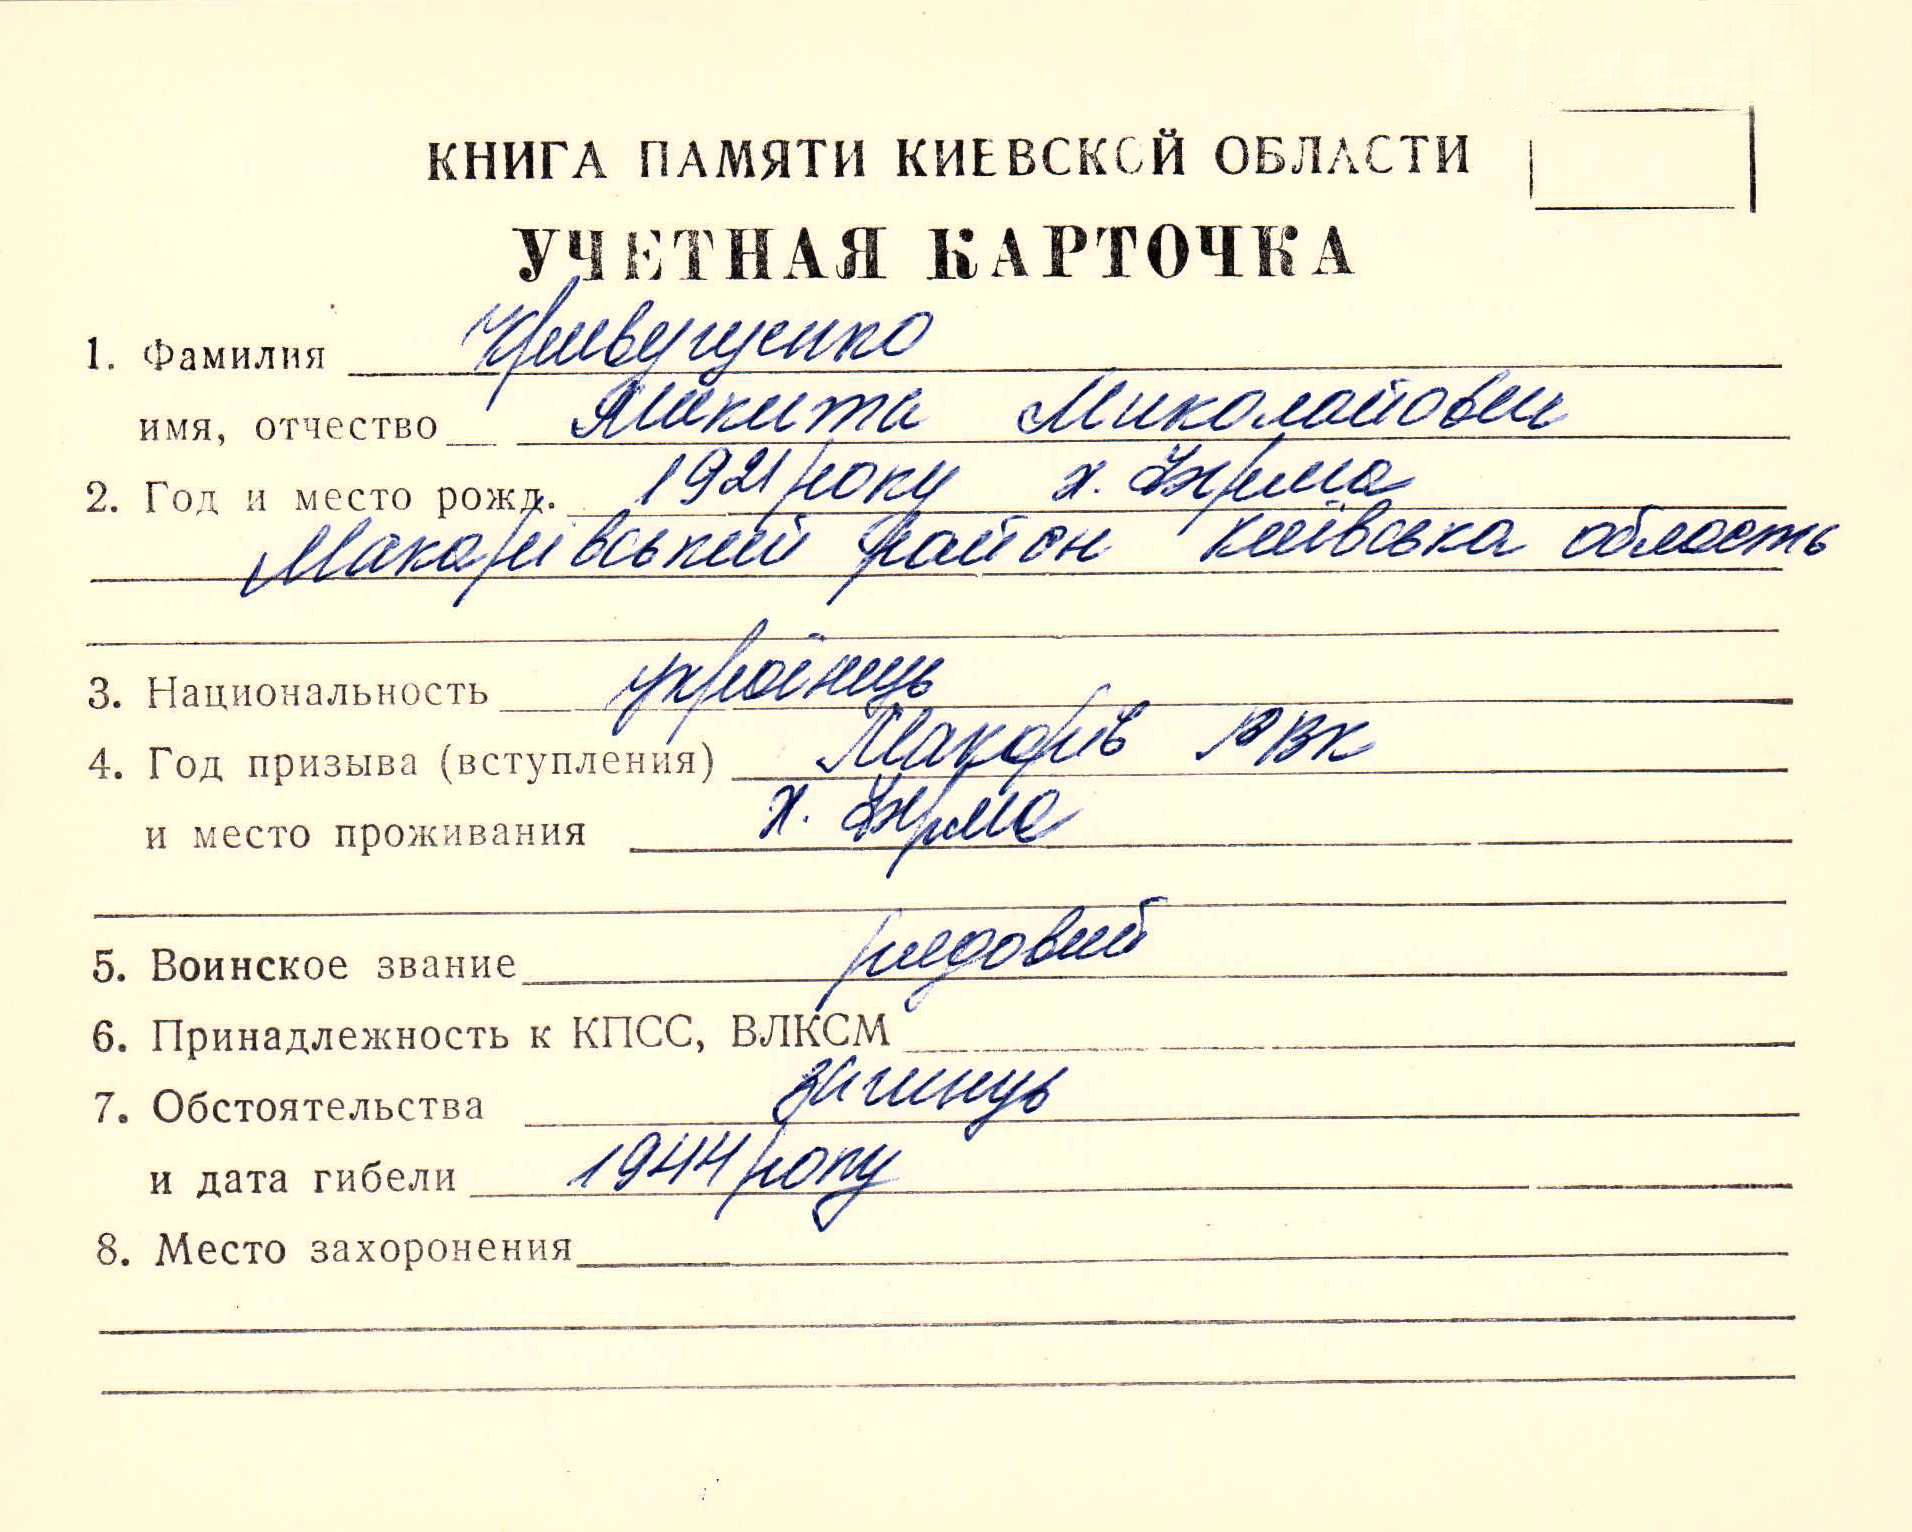 КНИГА ПАМЯТИ КИЕВСКОЙ ОБЛАСТИ
УЧЕТНАЯ КАРТОЧКА
1. Фамилия
имя, отчество Микита Миколайович
2. Год и место рожд. 1921 року х.
Макарівський район Київська область
3. Национальность українець
4. Год призыва (вступления) Макарів РВК
и место проживания х.
5. Воинское звание рядовий
6. Принадлежность к КПСС, ВЛКСМ
7. Обстоятельства загинув
и дата гибели 1944 року
8. Место захоронения